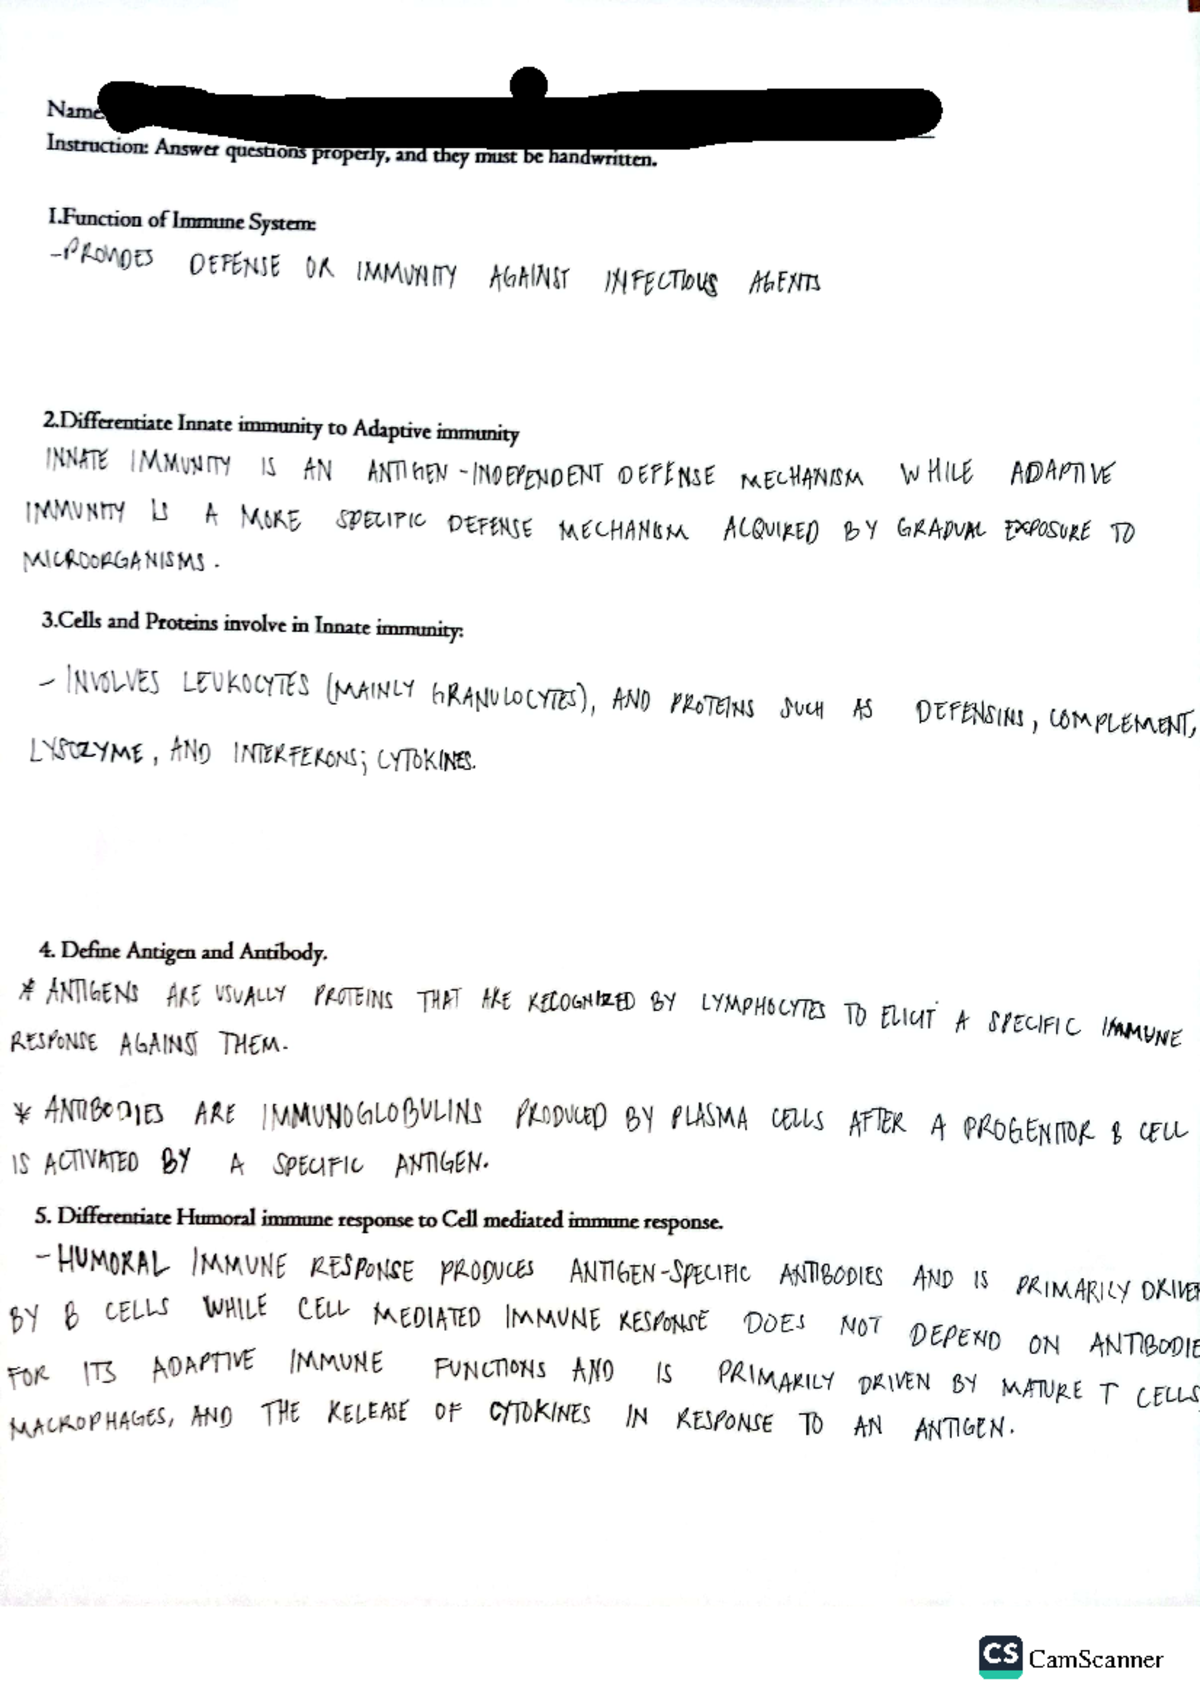 Name:
Instruction: Answer questions properly, and they must be handwritten.
1.Function of Immune System:
-PROVIDES DEFENSE OR IMMUNITY AGAINST INFECTIOUS AGENTS
2.Differentiate Innate immunity to Adaptive immunity
INNATE IMMUNITY IS AN ANTIGEN-INDEPENDENT DEFENSE MECHANISM WHILE ADAPTIVE
IMMUNITY IS A MORE SPECIFIC DEFENSE MECHANISM ACQUIRED BY GRADUAL EXPOSURE TO
MICROORGANISMS.
3.Cells and Proteins involve in Innate immunity:
- INVOLVES LEUKOCYTES (MAINLY GRANULOCYTES), AND PROTEINS SUCH AS DEFENSINS, COMPLEMENT,
LYSOZYME, AND INTERFERONS; CYTOKINES.
4. Define Antigen and Antibody.
* ANTIGENS ARE USUALLY PROTEINS THAT ARE RECOGNIZED BY LYMPHOCYTES TO ELICIT A SPECIFIC IMMUNE
RESPONSE AGAINST THEM.
* ANTIBODIES ARE IMMUNOGLOBULINS PRODUCED BY PLASMA CELLS AFTER A PROGENITOR B CELL
IS ACTIVATED BY A SPECIFIC ANTIGEN.
5. Differentiate Humoral immune response to Cell mediated immune response.
- HUMORAL IMMUNE RESPONSE PRODUCES ANTIGEN-SPECIFIC ANTIBODIES AND IS PRIMARILY DRIVEN
BY B CELLS WHILE CELL MEDIATED IMMUNE RESPONSE DOES NOT DEPEND ON ANTIBODIE
FOR ITS ADAPTIVE IMMUNE FUNCTIONS AND IS PRIMARILY DRIVEN BY MATURE T CELLS,
MACROPHAGES, AND THE RELEASE OF CYTOKINES IN RESPONSE TO AN ANTIGEN.
CS CamScanner